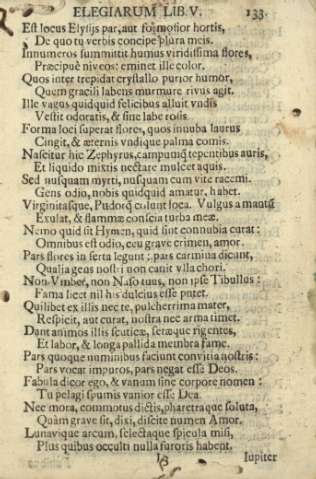 ELEGIARUM LIB V. 133.
Est locus Elysijs par, aut formosior hortis,
De quo tu verbis concipe plura meis.
Innumeros summittit humus viridissima flores,
Præcipuè niveos: eminet ille color.
Quos inter trepidat crystallo purior humor,
Quem gracili labens murmure rivus agit.
Ille vagus quidquid felicibus alluit vndis
Vestit odoratis, & sine labe rosis
Forma loci superat flores, quos innuba laurus
Cingit, & æternis vndique palma comis.
Nascitur hic Zephyrus, campumq; tepentibus auris,
Et liquido mixtis nectare mulcet aquis.
Sed nusquam myrti, nusquam cum vite racemi.
Gens odio, nobis quidquid amatur, habet.
Virginitasque, Pudorq; colunt loca. Vulgus amantũ
Exulat, & flammæ conscia turba meæ.
Nemo quid sit Hymen, quid sint connubia curat:
Omnibus est odio, ceu grave crimen, amor.
Pars flores in serta legunt; pars carmina dicunt,
Qualia geus nostri non canit vlla chori.
Non Vmber, non Naso tuus, non ipse Tibullus:
Fama licet nil his dulcius esse putet.
Quilibet ex illis nec te, pulcherrima mater,
Respicit, aut curat, nostra nec arma timet.
Dant animos illis scuticæ, setæque rigentes,
Et labor, & longa pallida membra fame.
Pars quoque numinibus faciunt convitia nostris:
Pars vocat impuros, pars negat esse Deos.
Fabula dicor ego, & vanum sine corpore nomen:
Tu pelagi spumis vanior esse Dea.
Nec mora, commotus dictis, pharetraque soluta,
Quàm grave sit, dixi, discite numen Amor.
Lunavique arcum, selectaque spicula misi,
Plus quibus occulti nulla furoris habent.
Iupiter